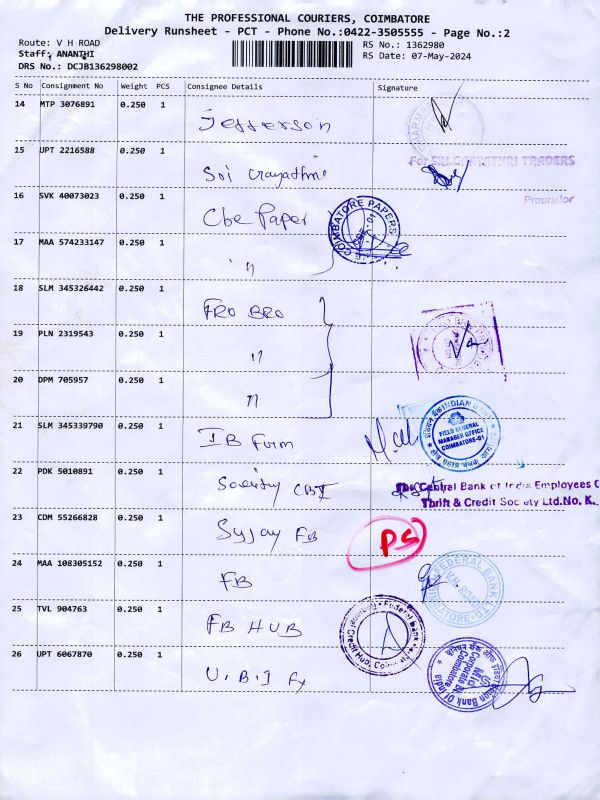 THE PROFESSIONAL COURIERS, COIMBATORE
Delivery Runsheet - PCT - Phone No.:0422-3505555 - Page No.:2
Route: V H ROAD
Staff: ANANTHI
DRS No.: DCJB136298002
RS No.: 1362980
RS Date: 07-May-2024
S No Consignment No Weight PCS Consignee Details Signature
14 MTP 3076891 0.250 1
Jefferson
15 UPT 2216588 0.250 1
For SRI GAYATHRI TRADERS
Sri Gayathri
Proprietor
16 SVK 40073023 0.250 1
Cbe Paper
COIMBATORE PAPERS
17 MAA 574233147 0.250 1
"
18 SLM 345326442 0.250 1
FRO BRO
19 PLN 2319543 0.250 1
"
20 DPM 705957 0.250 1
"
21 SLM 345339790 0.250 1
IB Furm
INDIAN BANK
FIELD GENERAL
MANAGER OFFICE
COIMBATORE-01
22 PDK 5010891 0.250 1
CBI
The Central Bank of India Employees C
Thrift & Credit Society Ltd.No. K.
23 CDM 55266828 0.250 1
Syjay FB
PS
24 MAA 108305152 0.250 1
FB
FEDERAL BANK
COIMBATORE
25 TVL 904763 0.250 1
FB HUB
Federal Bank
Credit Hub, Coimbatore
26 UPT 6067870 0.250 1
U.B.I
Union Bank Of India
Mid Corporate
Coimbatore